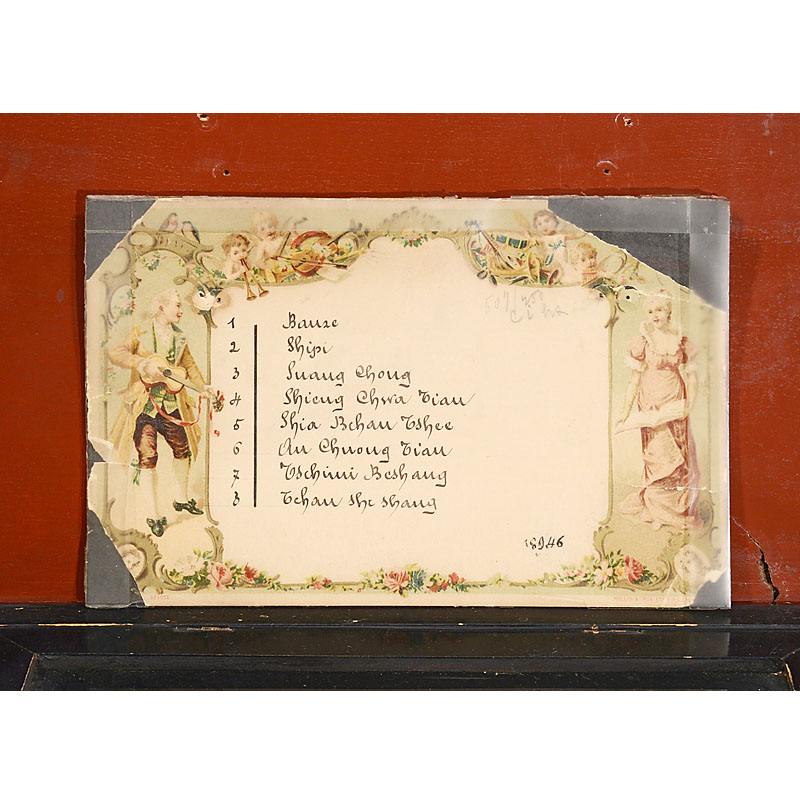 1 Bauze
2 Shipi
3 Suang Chong
4 Shieng Chwa Tian
5 Shia Bchan Tshee
6 Au Chuong Tian
7 Tschimi Beshang
8 Tchau She Shang
18946